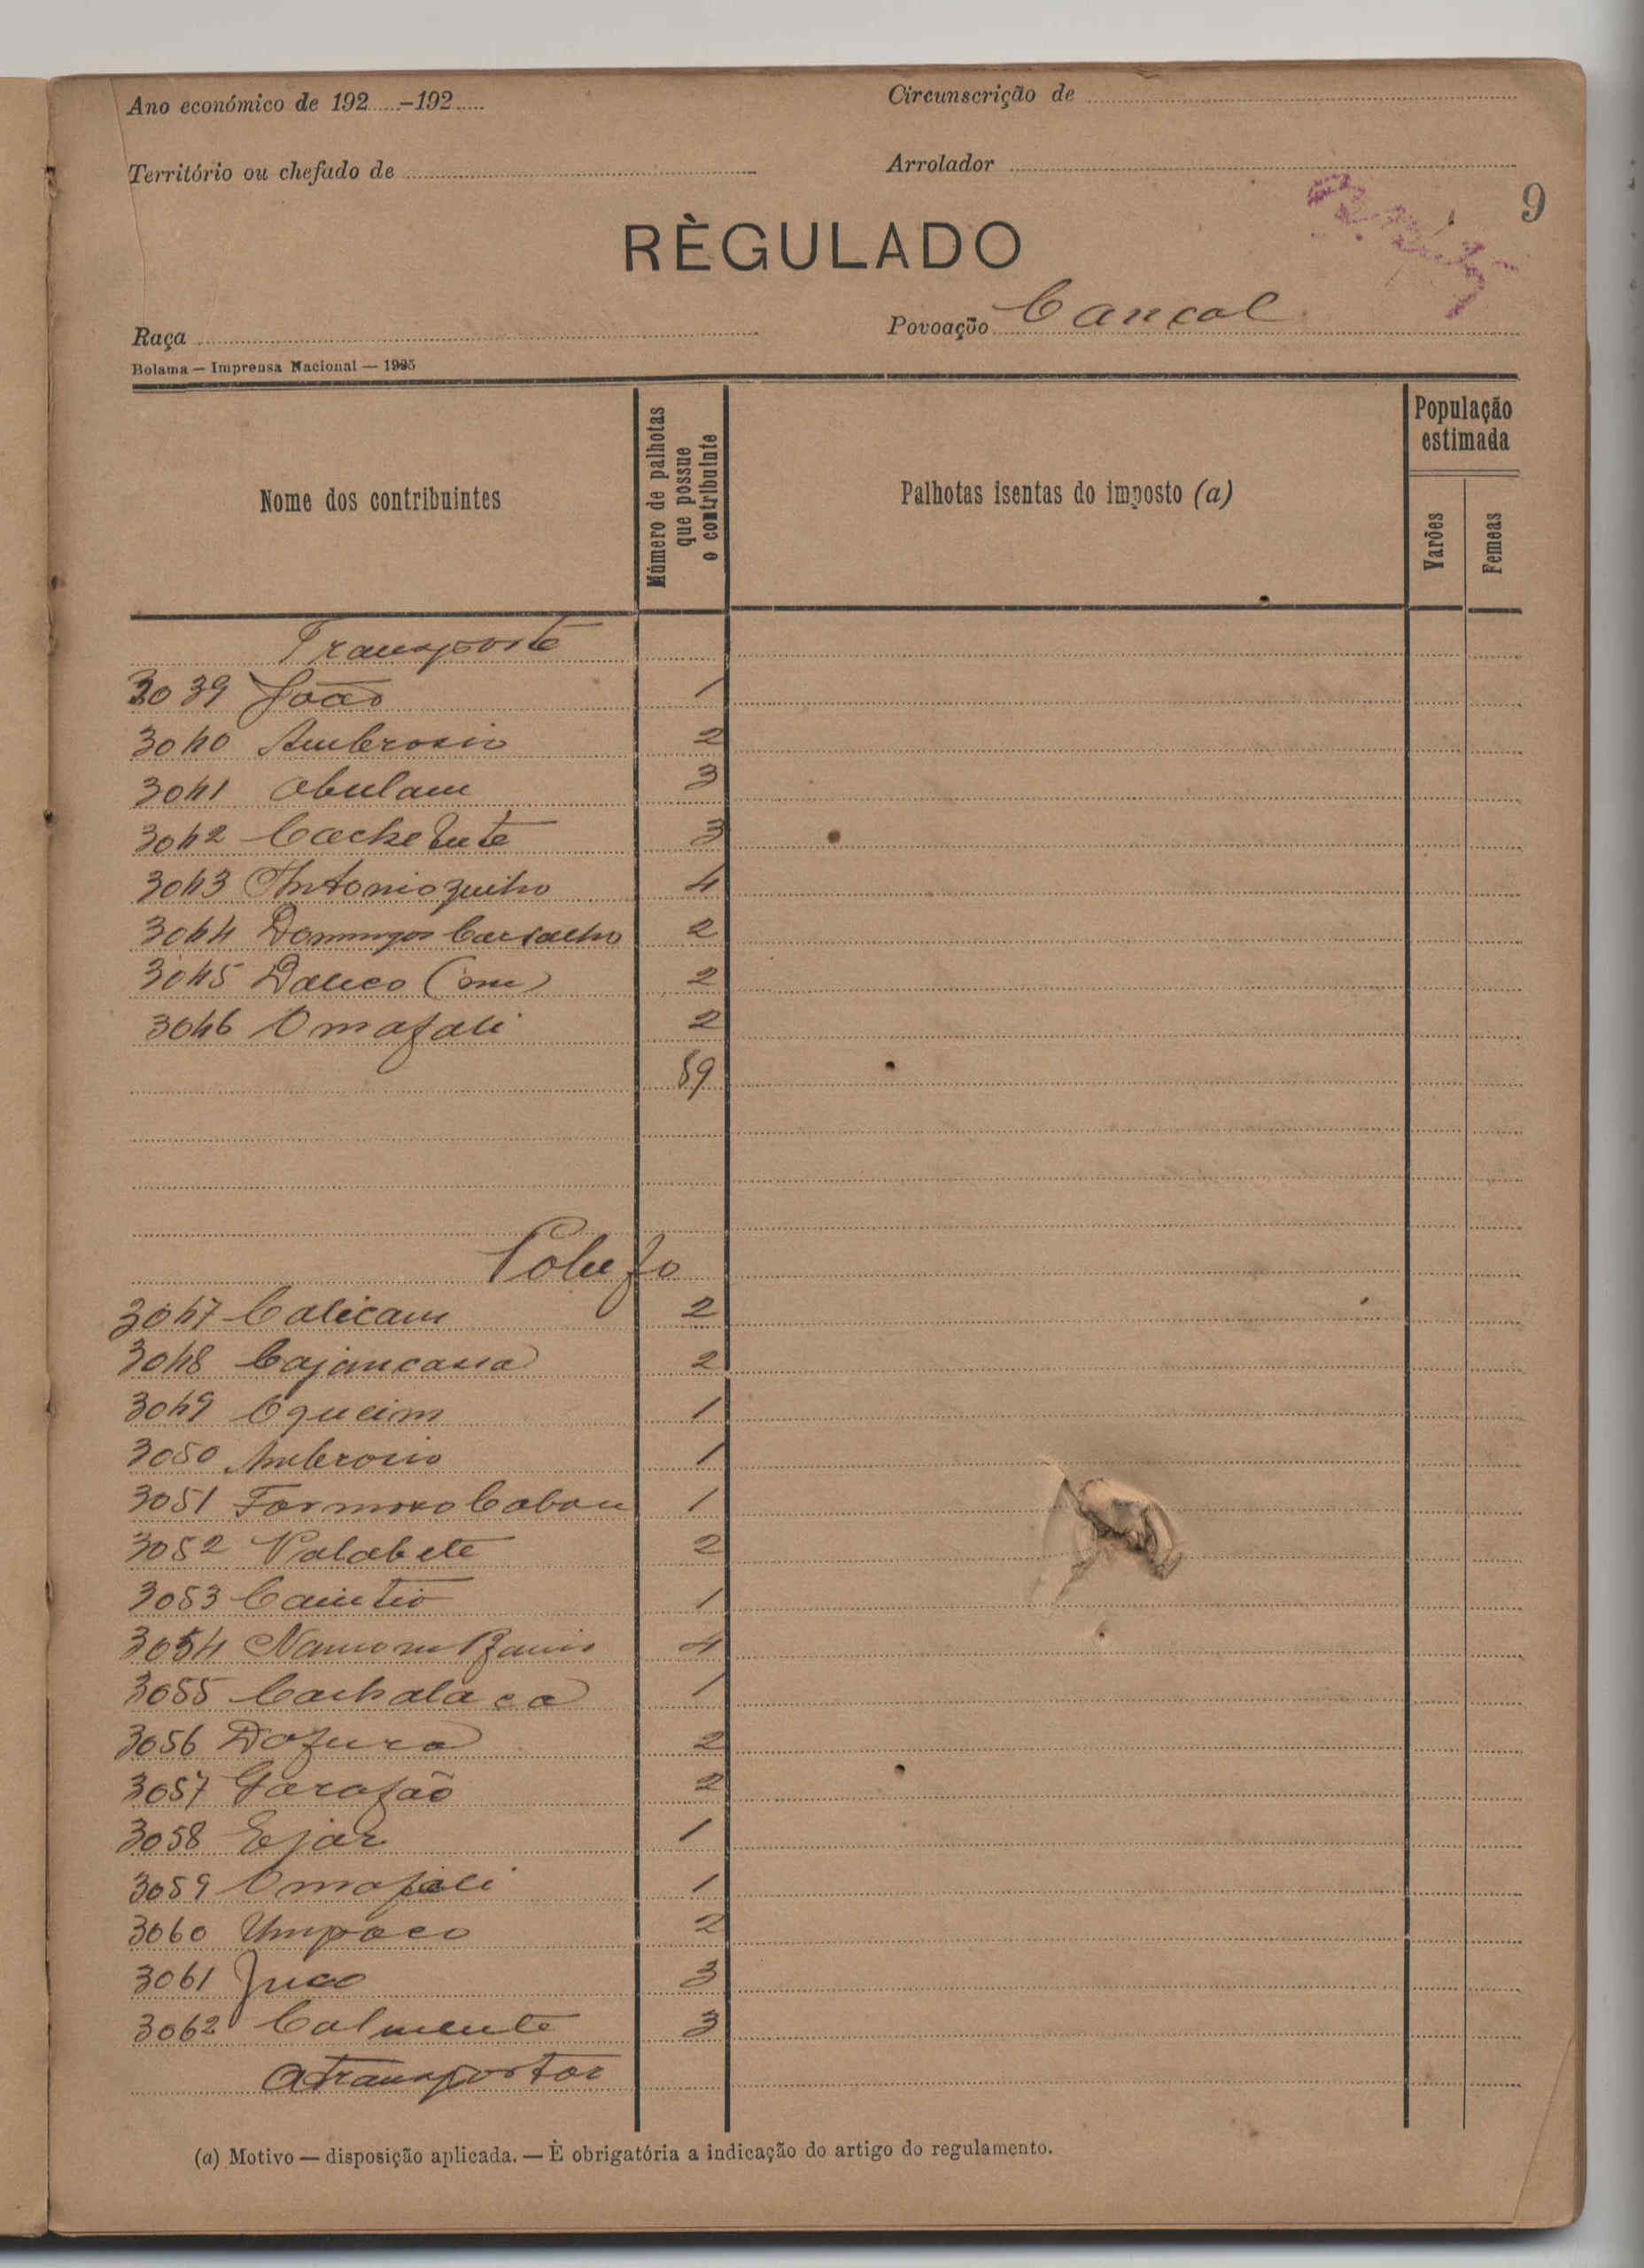 Ano económico de 192.....-192.....
Circunscrição de
Território ou chefado de
Arrolador
9
RÈGULADO
Raça
Povoação Cancal
Bolama — Imprensa Nacional — 1925
Nome dos contribuintes
Número de palhotas que possue o contribuinte
Palhotas isentas do imposto (a)
População estimada
Varões
Femeas
Transporte
3039 João 1
3040 Ambrosio 2
3041 Obulam 3
3042 3
3043 Antonio 4
3044 Domingos Carvalho 2
3045 2
3046 Omafali 2
59
3047 Calicam 2
3048 2
3049 1
3050 Ambrosio 1
3051 Formoso 1
3052 2
3053 1
3054 4
3055 1
3056 Dofura 2
3057 Garafão 2
3058 Ejar 1
3059 Omafali 1
3060 2
3061 3
3062 Calmente 3
A transportar
(a) Motivo — disposição aplicada. — È obrigatória a indicação do artigo do regulamento.